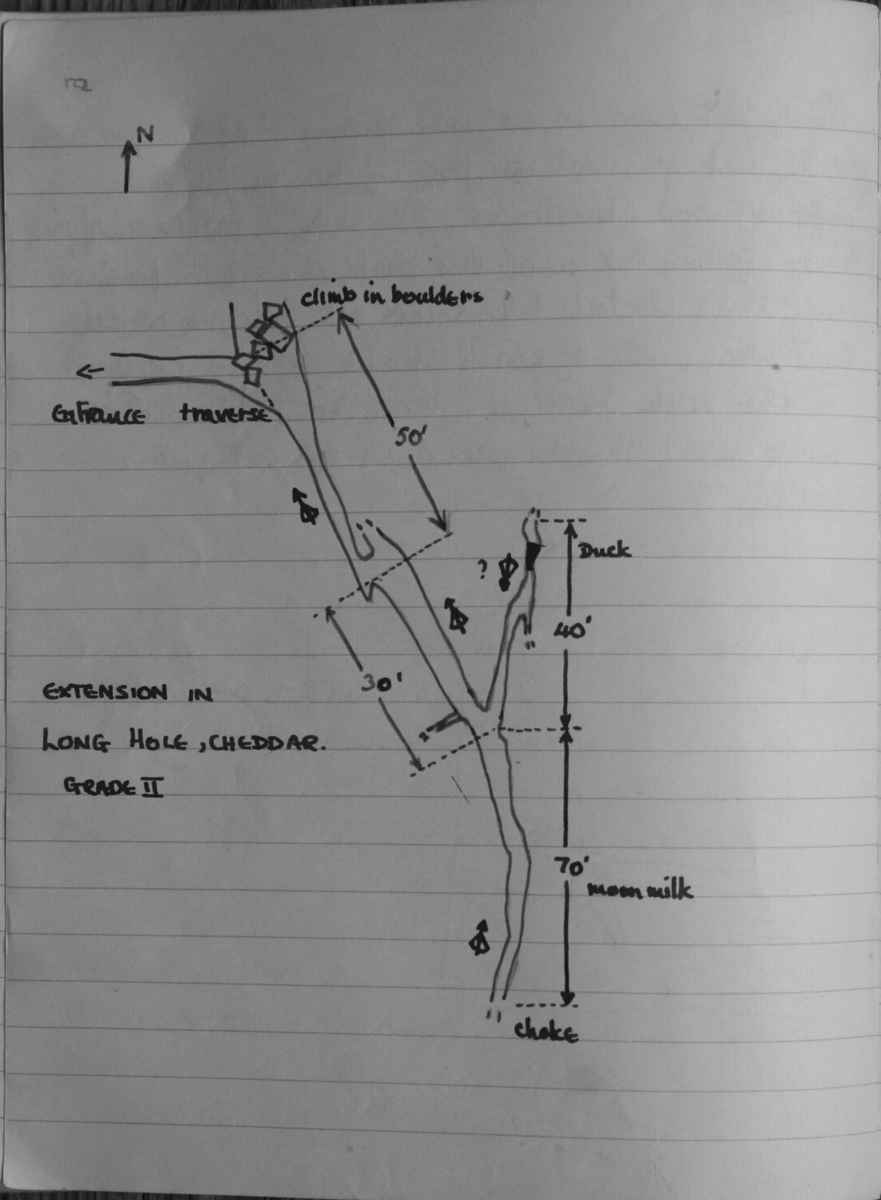 N
climb in boulders
Entrance traverse
50'
Duck
?
40'
30'
EXTENSION IN
LONG HOLE, CHEDDAR.
GRADE II
70'
moon milk
choke